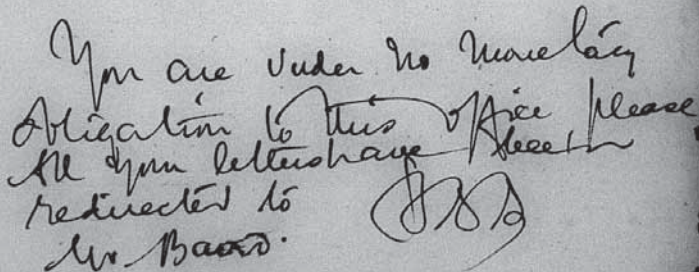 You are under no monetary
obligation to this office please
All your letters have been
redirected to
Mr